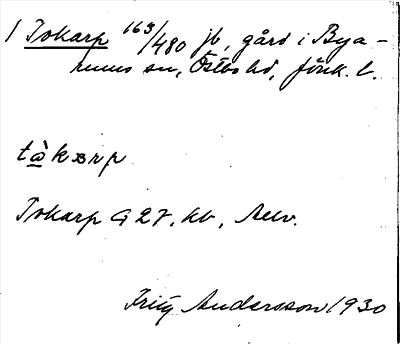 1 Tokarp 163/480 jb, gård i Bya-
rums sn, Östbo hd, Jönk. l.
tå̀kɜrp
Tokarp G 27. kb,
Fritz Andersson 1930